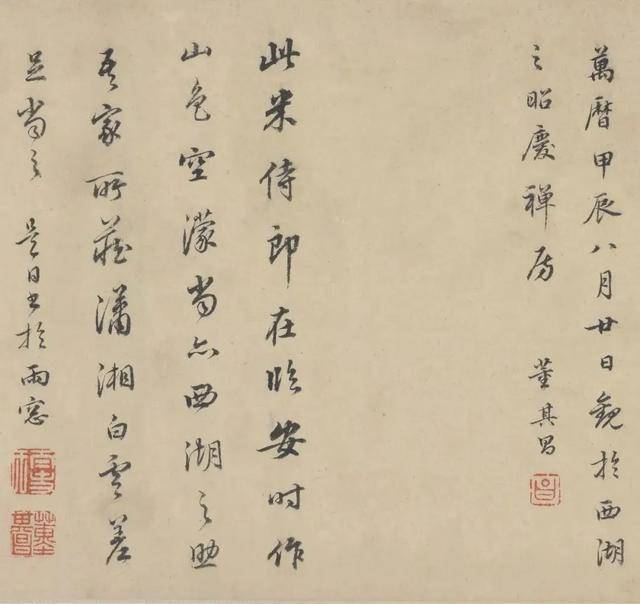 萬曆甲辰八月廿日觀於西湖
之昭慶禪房 董其昌
此米侍郎在臨安時作
山色空濛當亦西湖之助
吾家所藏瀟湘白雲差
足當之 是日書於雨窓